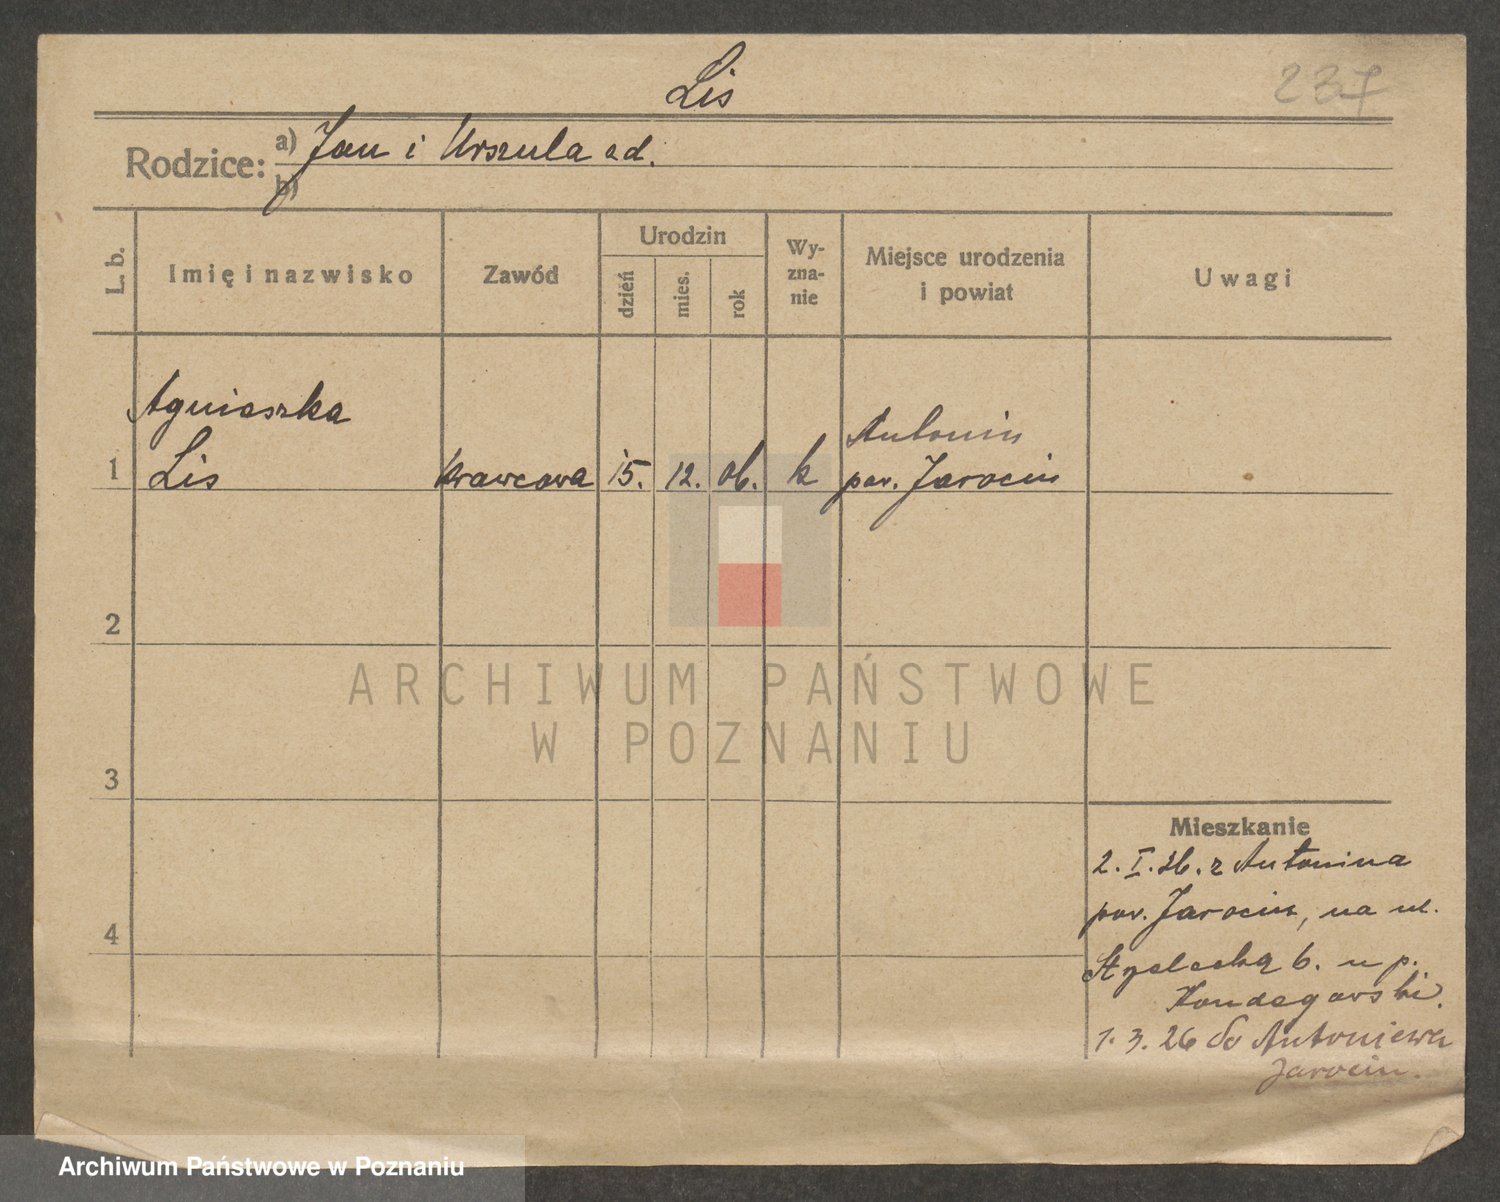 Lis
237
Rodzice:
a) Jan i Urszula ed.
b)
L. b.
Imię i nazwisko
Zawód
Urodzin
dzień
mies.
rok
Wy-
zna-
nie
Miejsce urodzenia
i powiat
Uwagi
Agnieszka
1 Lis
krawcowa
15. 12. 06.
k
Antonin
pow. Jarocin
2
3
4
ARCHIWUM PAŃSTWOWE
W POZNANIU
Mieszkanie
2. I. 26. z Antonina
pow. Jarocin, na ul.
Strzelecką 6. u p.
1. 3. 26 do Antoniewa
Jarocin.
Archiwum Państwowe w Poznaniu